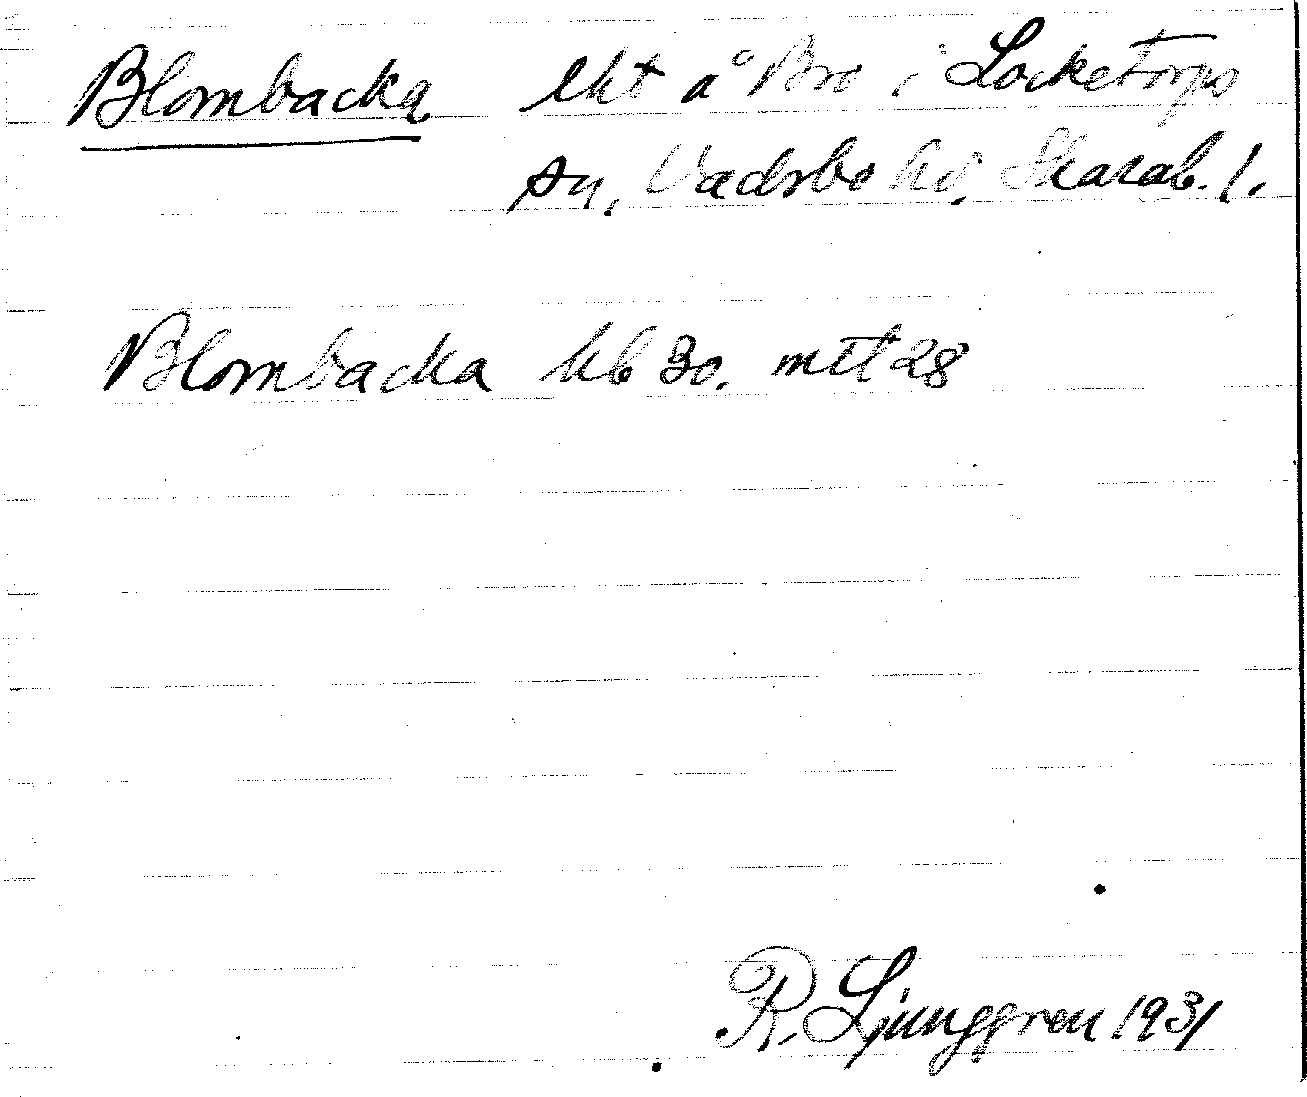 Blombacka lht å Bro i Locketorps
sn, Vadsbo hd, Skarab. l.
Blombacka hb 30. mtl 28
R. Ljunggren 1931